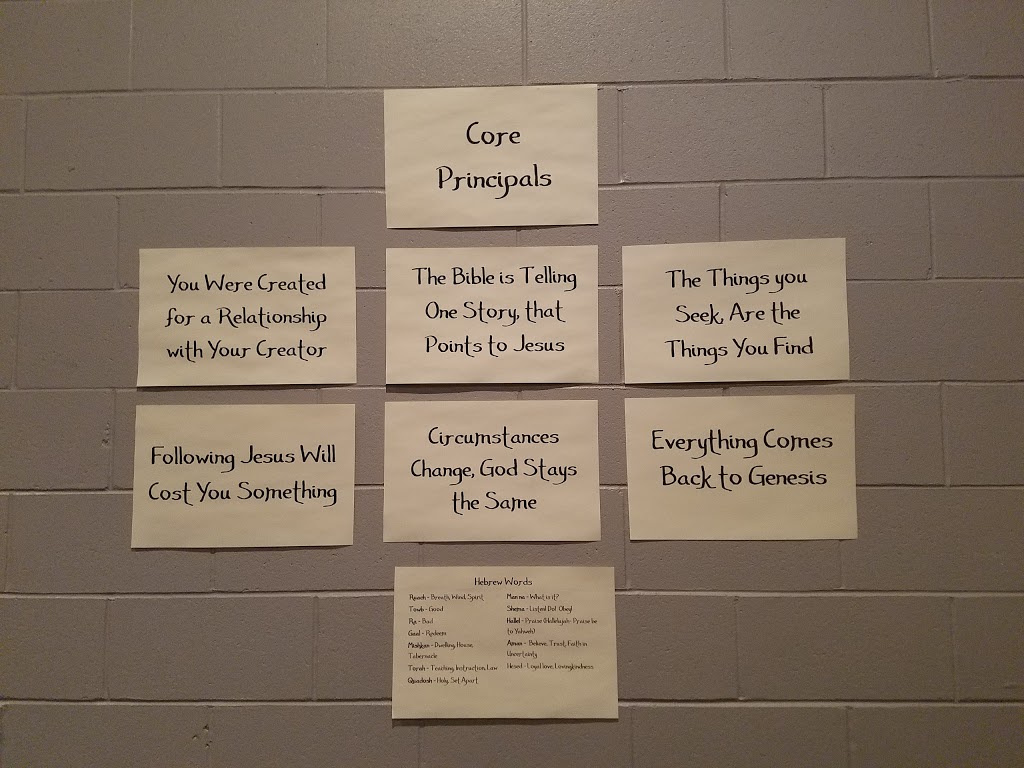 Core
Principals
You Were Created
for a Relationship
with Your Creator
The Bible is Telling
One Story, that
Points to Jesus
The Things you
Seek, Are the
Things You Find
Following Jesus Will
Cost You Something
Circumstances
Change, God Stays
the Same
Everything Comes
Back to Genesis
Hebrew Words
Ruach - Breath, Wind, Spirit
Towb - Good
Ra - Bad
Gaal - Redeem
Mishkan - Dwelling, House,
Tabernacle
Torah - Teaching, Instruction, Law
Quadosh - Holy, Set Apart
Manna - What is it?
Shema - Listen! Do! Obey!
Hallel - Praise (Hallelujah - Praise be
to Yahweh)
Aman - Believe, Trust, Faith in
Uncertainty
Hesed - Loyal love, Lovingkindness